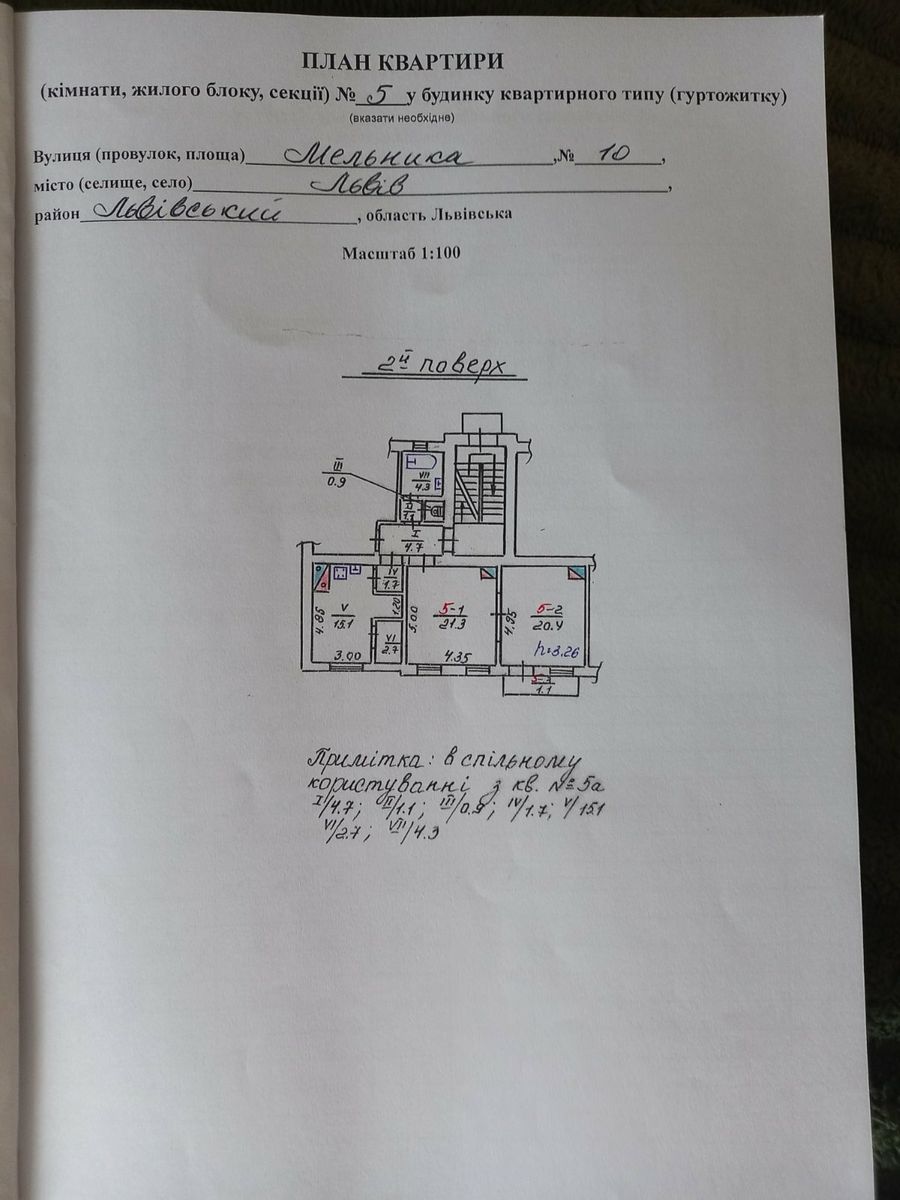 ПЛАН КВАРТИРИ
(кімнати, жилого блоку, секції) № 5 у будинку квартирного типу (гуртожитку)
(вказати необхідне)
Вулиця (провулок, площа) Мельника ,№ 10 ,
місто (селище, село) Львів ,
район Львівський , область Львівська
Масштаб 1:100
2й поверх
III
0.9
VII
4.3
II
1.1
I
4.7
IV
1.7
V
15.1
4.85
3.00
1.20
VI
2.7
5.00
5-1
21.3
4.35
4.95
5-2
20.4
h=3.26
1.1
Примітка: в спільному
користуванні з кв. №5а
I/4.7; II/1.1; III/0.9; IV/1.7; V/15.1
VI/2.7; VII/4.3